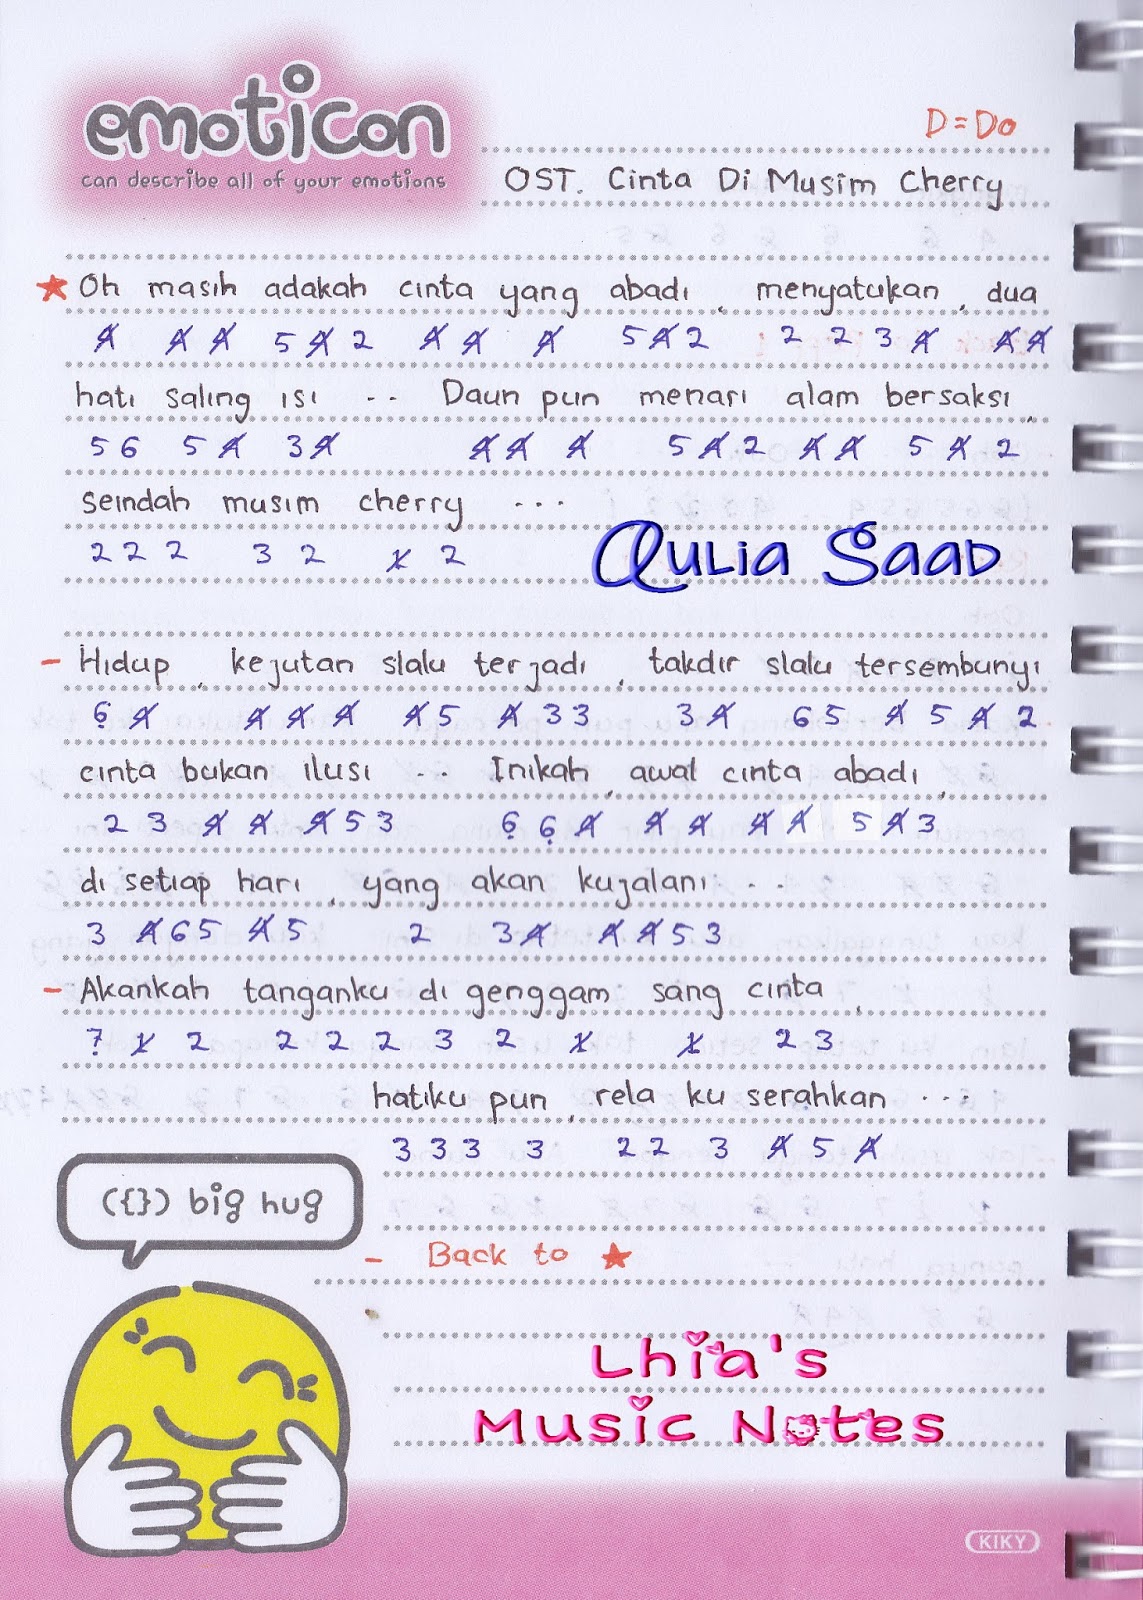 emoticon
can describe all of your emotions
D = Do
OST. Cinta Di Musim Cherry
★ Oh masih adakah cinta yang abadi, menyatukan, dua
4̸ 4̸ 4̸ 5 4̸ 2 4̸ 4̸ 4̸ 5 4̸ 2 2 2 3 4̸ 4̸ 4̸
hati saling isi .. Daun pun menari alam bersaksi,
5 6 5 4̸ 3 4̸ 4̸ 4̸ 4̸ 5 4̸ 2 4̸ 4̸ 5 4̸ 2
seindah musim cherry ...
2 2 2 3 2 1̸ 2
Aulia Saad
- Hidup, kejutan slalu terjadi, takdir slalu tersembunyi
6̣ 4̸ 4̸ 4̸ 4̸ 4̸ 5 4̸ 3 3 3 4̸ 6 5 4̸ 5 4̸ 2
cinta bukan ilusi .. Inikah, awal cinta abadi,
2 3 4̸ 4̸ 4̸ 5 3 6̣ 6̣ 4̸ 4̸ 4̸ 4̸ 4̸ 5 4̸ 3
di setiap hari, yang akan kujalani ...
3 4̸ 6 5 4̸ 5 2 3 4̸ 4̸ 4̸ 5 3
- Akankah tanganku di genggam sang cinta,
7̣ 1̸ 2 2 2 2 3 2 1̸ 1̸ 2 3
hatiku pun, rela ku serahkan ...
3 3 3 3 2 2 3 4̸ 5 4̸
({}) big hug
- Back to ★
Lhia's
Music Notes
KIKY